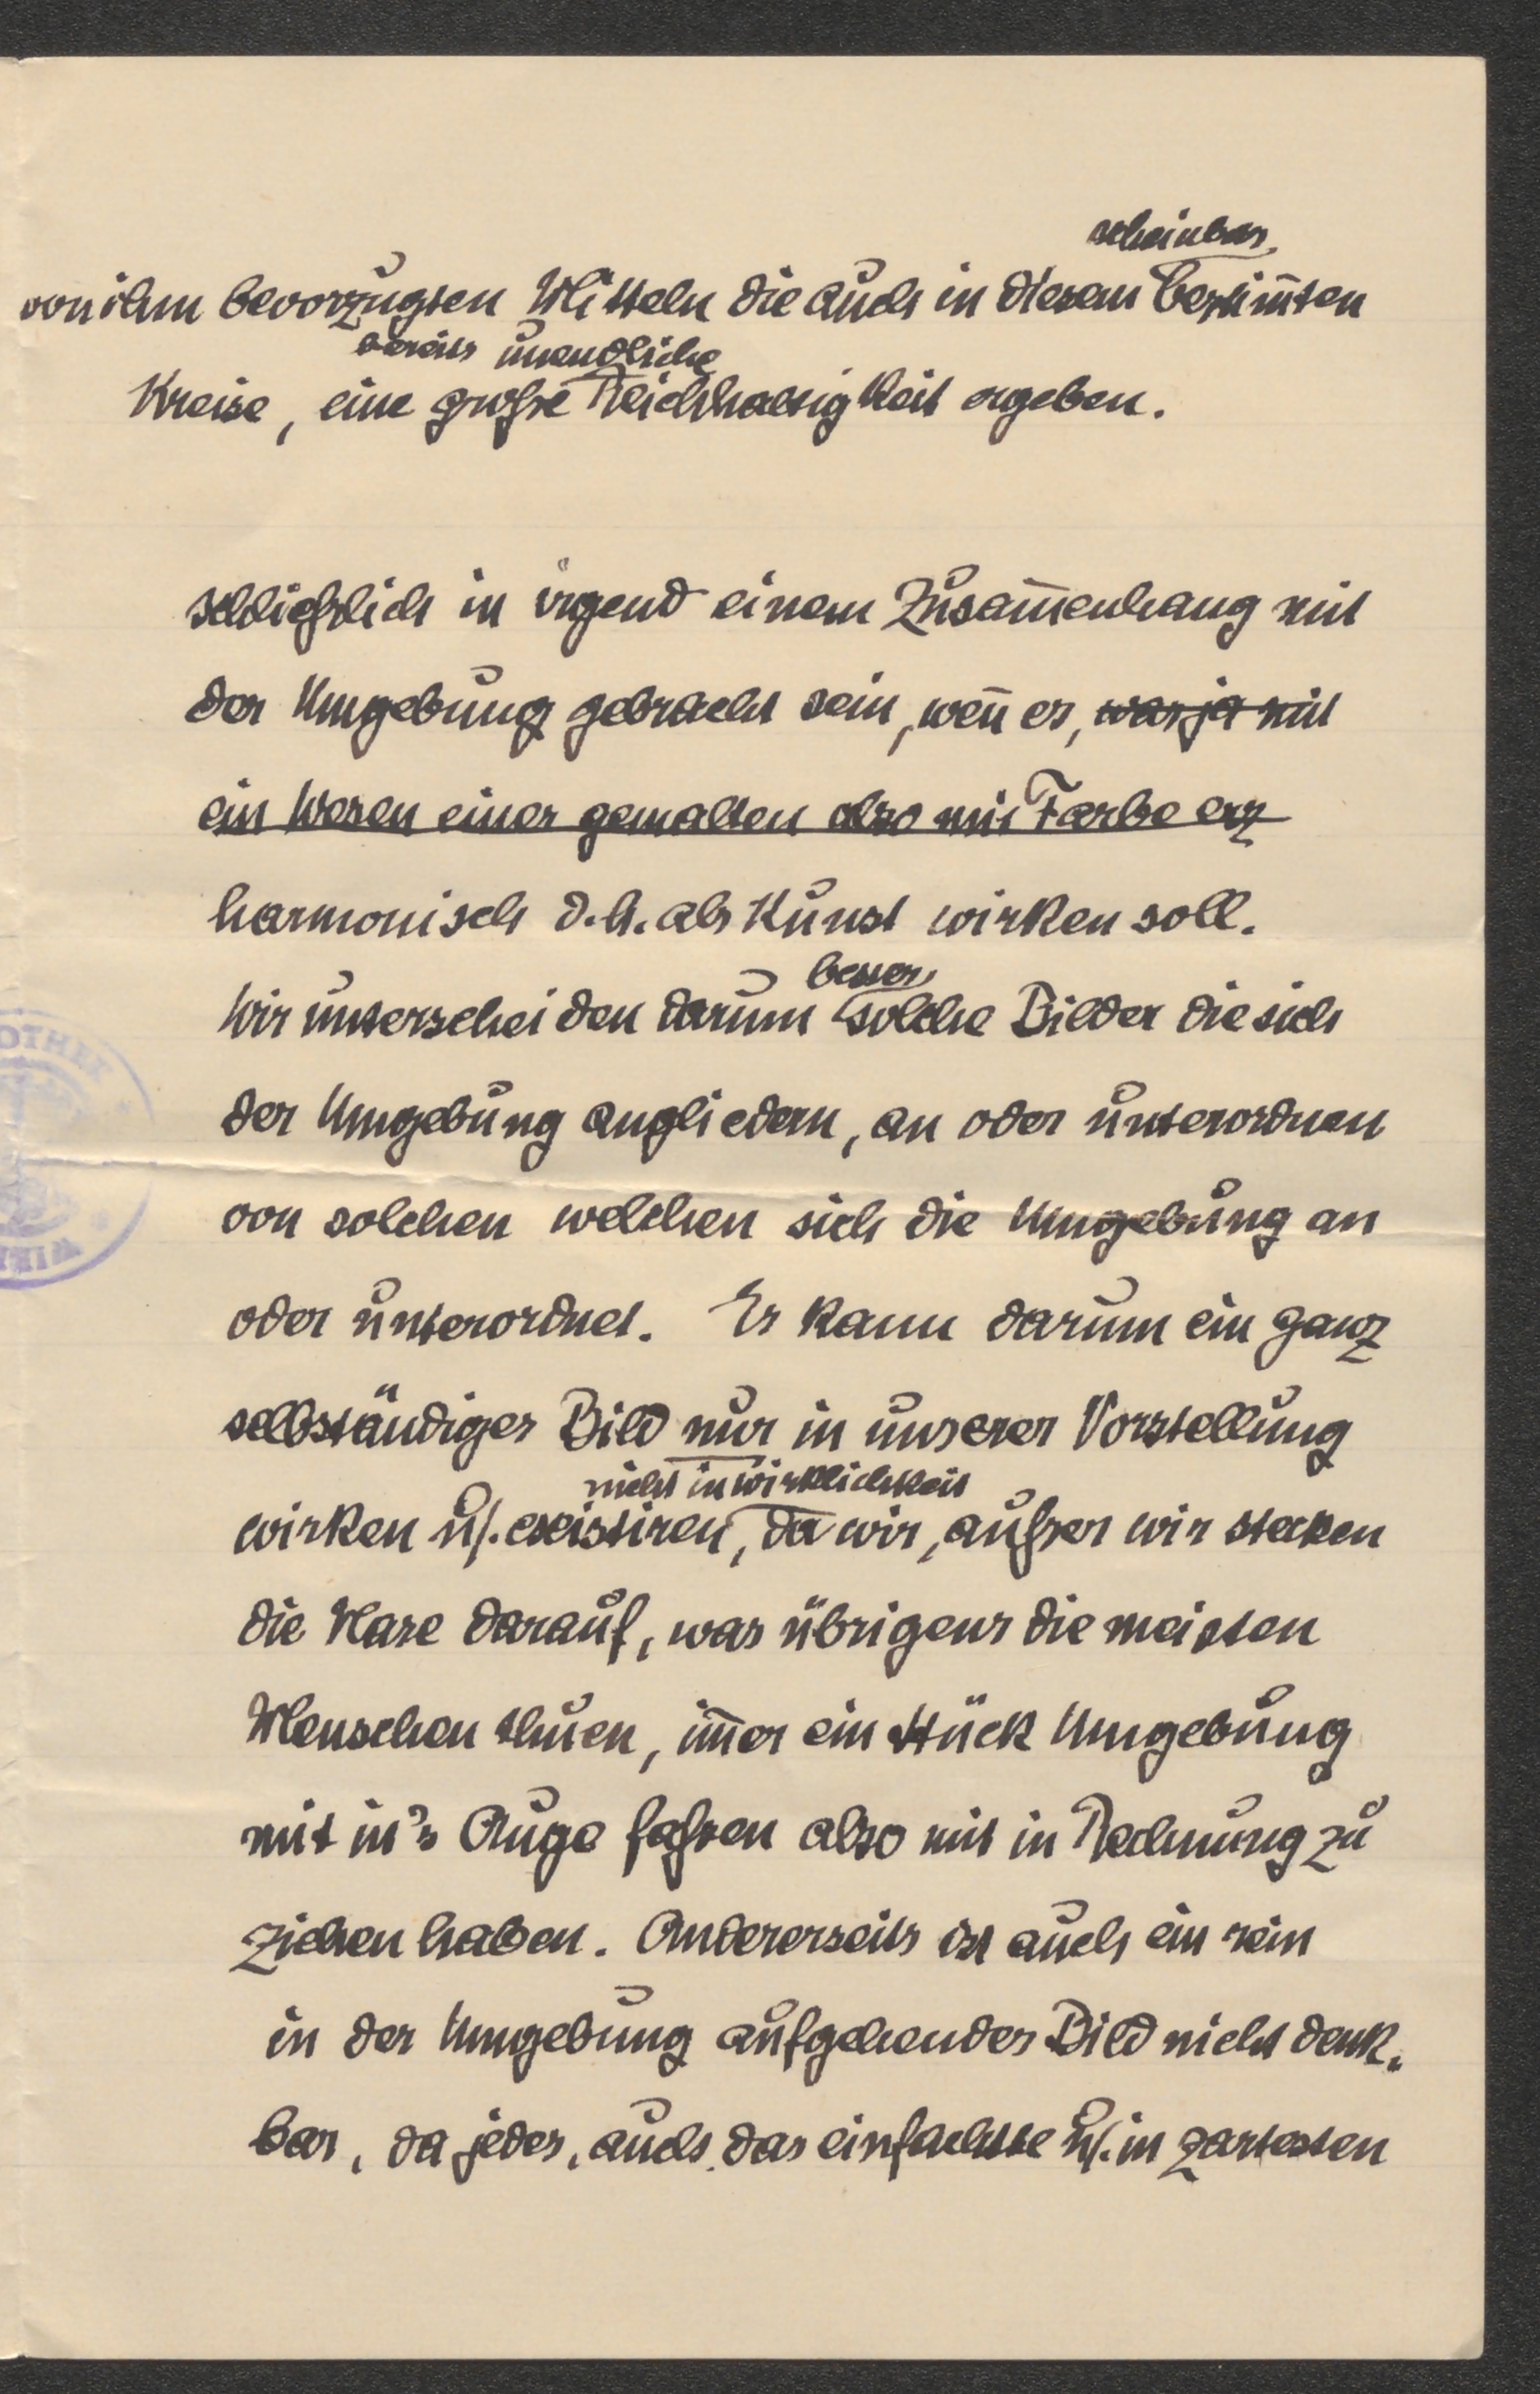 scheinbar
von ihm bevorzugten Mitteln die auch in diesem bestim̅ten
unendliche
Kreise, eine große Reichhaltigkeit ergeben.
schließlich in irgend einem Zusam̅enhang mit
der Umgebung gebracht sein, wen̅ es, was ja mit
ein Wesen einer gemalten also mit Farbe erz
harmonisch d.h. als Kunst wirken soll.
besser
Wir unterscheiden darum solche Bilder die sich
der Umgebung angliedern, an oder unterordnen
von solchen welchen sich die Umgebung an
oder unterordnet. Es kann darum ein ganz
selbständiges Bild nur in unserer Vorstellung
nicht in Wirklichkeit
wirken u/. existiren, da wir, außer wir stecken
die Nase darauf, was übrigens die meisten
Menschen thuen, im̅er ein Stück Umgebung
mit in's Auge faßen also mit in Rechnung zu
ziehen haben. Andererseits ist auch ein rein
in der Umgebung aufgehendes Bild nicht denk„
bar, da jedes, auch das einfachste u/. in zartesten
OTHEK
WIEN